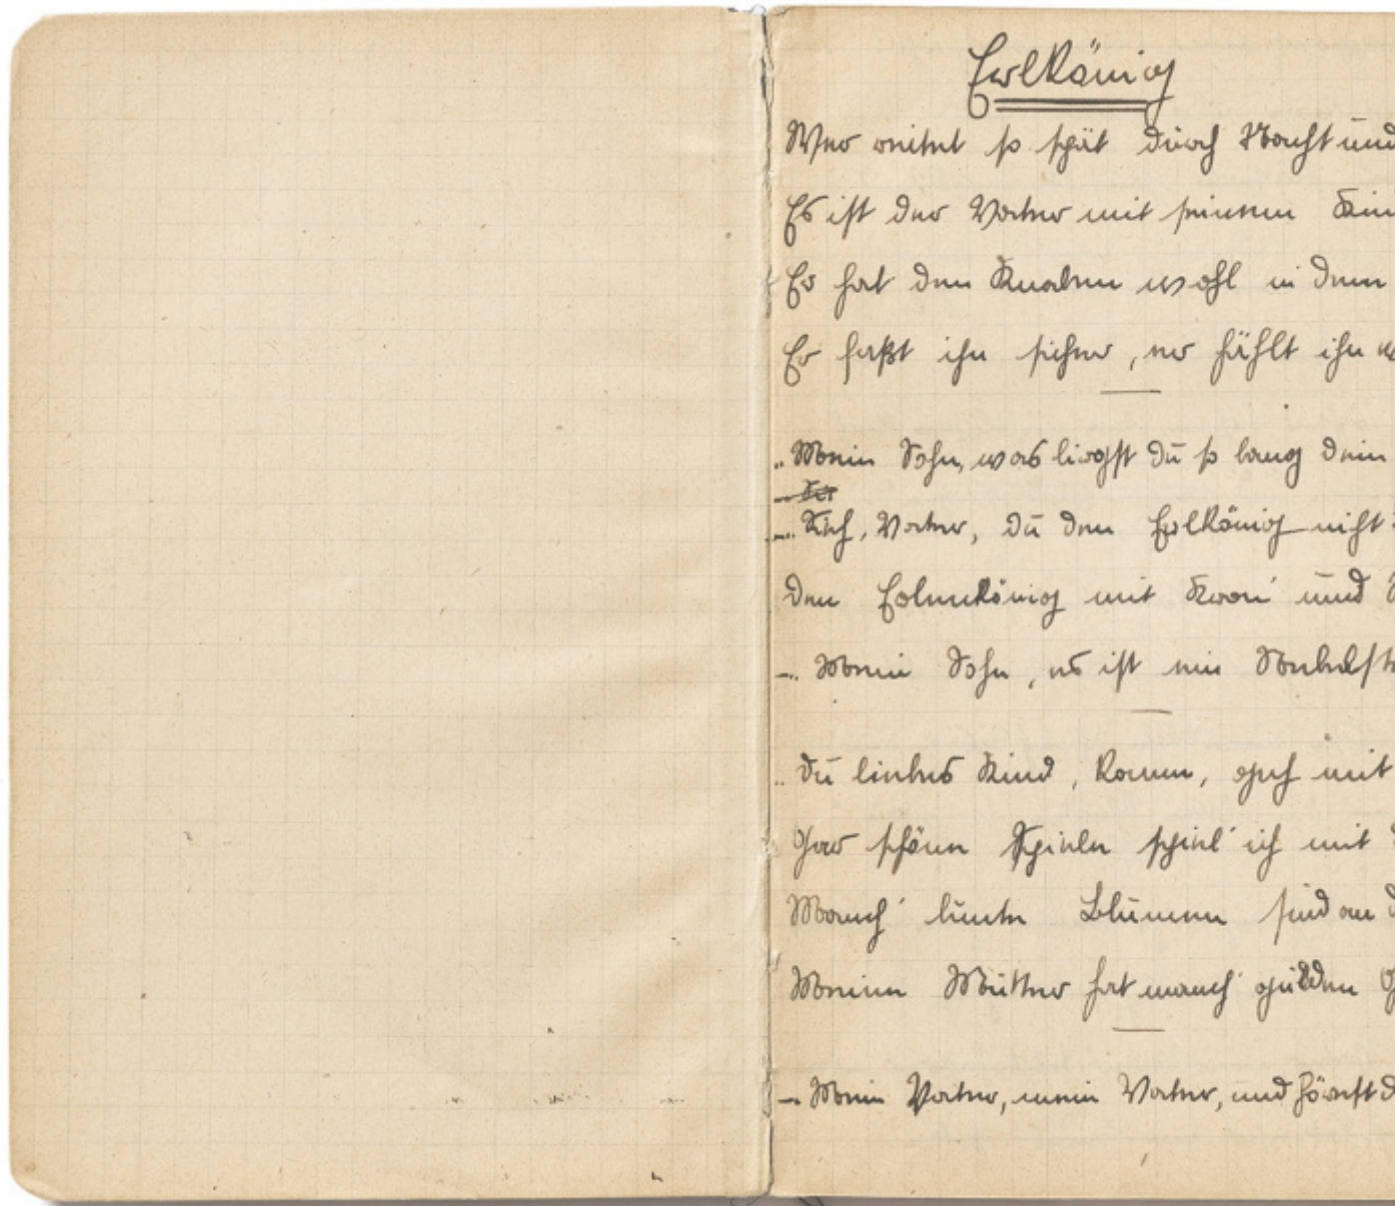 Erlkönig
Wer reitet so spät durch Nacht und
Es ist der Vater mit seinem Kin
Er hat den Knaben wohl in dem
Er faßt ihn sicher, er hählt ihn w
„Mein Sohn, was birgst du so bang dein
– Sieh, Vater, du den Erlkönig nicht?
den Erlenkönig mit Kron' und S
–. Mein Sohn, es ist ein Nebelst
„Du liebes Kind, komm, geh mit
Gar schöne Spiele spiel' ich mit d
Manch' bunte Blumen sind an d
Meine Mutter hat manch' gülden G
–. Mein Vater, mein Vater, und hörest d